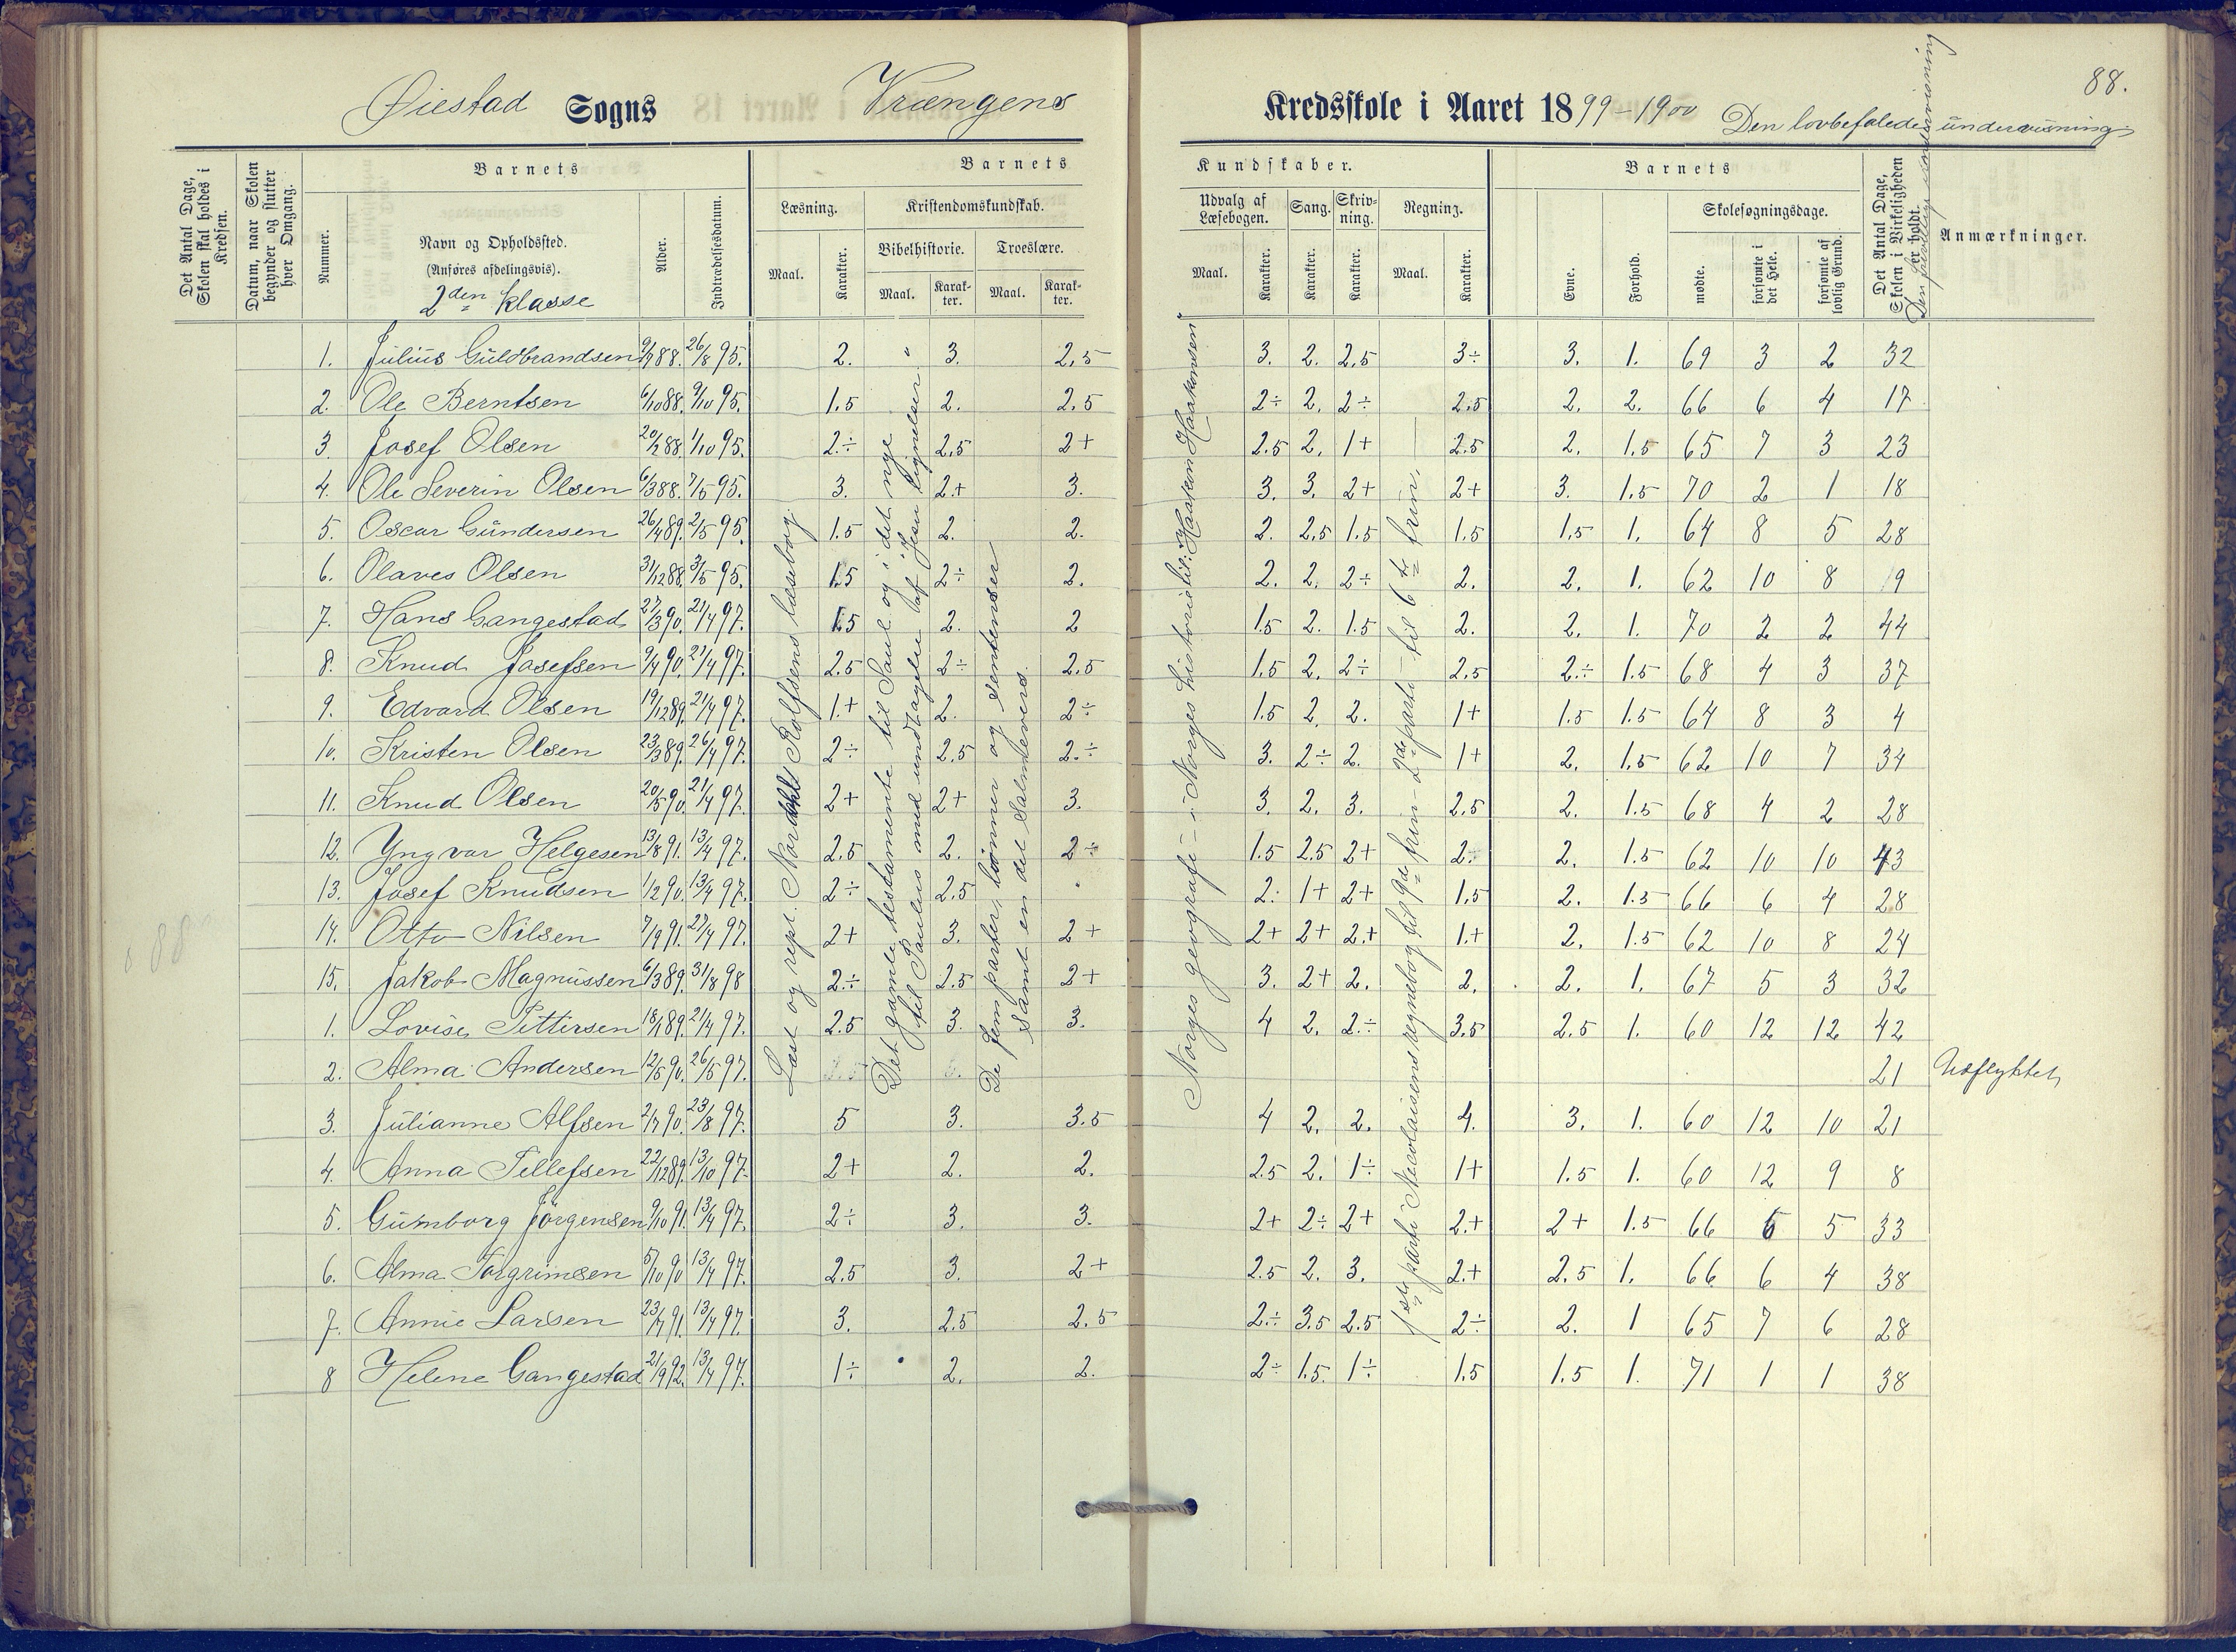 88.
Øiestad Sogns Vrængens Kredsskole i Aaret 1899-1900 Den lovbefalede undervisning
Det Antal Dage, Skolen skal holdes i Kredsen.
Datum, naar Skolen begynder og slutter hver Omgang.
Barnets
Nummer.
Navn og Opholdssted.
(Anføres afdelingsvis).
2den klasse
Alder.
Indtrædelsesdatum.
Barnets Kundskaber.
Læsning.
Maal. Karakter.
Kristendomskundskab.
Bibelhistorie. Troeslære.
Maal. Karakter. Maal. Karakter.
Udvalg af Læsebogen. Sang. Skrivning. Regning.
Maal. Karakter. Karakter. Karakter. Maal. Karakter.
Barnets
Evne. Forhold.
Skolesøgningsdage.
mødte. forsømte i det Hele. forsømte af lovlig Grund.
Det Antal Dage, Skolen i Virkeligheden er holdt.
Den frivillige undervisning
Anmærkninger.
Læst og rept. Nordahl Rolfsens læsebog.
Det gamle testamente til Saul og i det nye
til Paulus med undtagelse af Jesu lignelser.
De fem parter, lønner og sentenser
samt en del salmevers.
Norges geografi – i Norges historie til: "Haakon Haakonsen"
1ste parti Nicolaisens regnebog til 9de trin – 2det parti – til 6te trin.
1. Julius Guldbrandsen 9/7 88. 26/8 95. 2. " 3. 2,5 3. 2. 2,5 3÷ 3. 1. 69 3 2 32
2. Ole Berntsen 6/10 88. 9/10 95. 1.5 2. 2.5 2÷ 2. 2÷ 2.5 2. 2. 66 6 4 17
3. Josef Olsen 20/2 88. 1/10 95. 2÷ 2,5 2+ 2.5 2. 1+ 2.5 2. 1.5 65 7 3 23
4. Ole Severin Olsen 6/3 88. 7/5 95. 3. 2+ 3. 3. 3. 2+ 2+ 3. 1.5 70 2 1 18
5. Oscar Gundersen 26/4 89. 2/5 95. 1.5 2. 2. 2. 2,5 1.5 1.5 1,5 1. 64 8 5 28
6. Olaves Olsen 31/12 88. 3/5 95. 1.5 2÷ 2. 2. 2. 2÷ 2. 2. 1. 62 10 8 19
7. Hans Gangestad 27/3 90. 21/4 97. 1.5 2. 2 1.5 2. 1.5 2. 2. 1. 70 2 2 44
8. Knud Josefsen 9/4 90. 21/4 97. 2.5 2÷ 2.5 1,5 2. 2÷ 2,5 2÷ 1.5 68 4 3 37
9. Edvard Olsen 19/12 89. 21/4 97. 1.+ 2. 2÷ 1.5 2. 2. 1+ 1.5 1.5 64 8 3 4
10. Kristen Olsen 23/3 89. 26/4 97. 2÷ 2,5 2÷ 3. 2÷ 2. 1+ 2. 1.5 62 10 7 34
11. Knud Olsen 20/5 90. 21/4 97. 2+ 2+ 3. 3. 2. 3. 2.5 2. 1.5 68 4 2 28
12. Yngvar Helgesen 13/8 91. 13/4 97. 2.5 2. 2÷ 1.5 2.5 2+ 2. 2. 1.5 62 10 10 43
13. Josef Knudsen 1/2 90. 13/4 97. 2÷ 2.5 2. 1+ 2+ 1,5 2. 1.5 66 6 4 28
14. Otto Nilsen 7/9 91. 27/4 97. 2+ 3. 2+ 2+ 2+ 2.+ 1.+ 2. 1.5 62 10 8 24
15. Jakob Magnussen 6/3 89. 31/8 98 2÷ 2.5 2+ 3. 2+ 2. 2. 2. 1. 67 5 3 32
1. Lovise Pettersen 18/1 89. 21/4 97. 2.5 3. 3. 4 2. 2÷ 3.5 2.5 1. 60 12 12 42
2. Alma Andersen 12/5 90. 26/5 97. 21 Udflyttet
3. Julianne Alfsen 2/7 90. 23/8 97. 5 3. 3.5 4 2. 2. 4. 3. 1. 60 12 10 21
4. Anna Tellefsen 22/12 89. 13/10 97. 2+ 2. 2. 2.5 2. 1÷ 1+ 1.5 1. 60 12 9 8
5. Gumborg Jørgensen 9/10 91. 13/4 97. 2÷ 3. 3. 2+ 2÷ 2+ 2.+ 2+ 1.5 66 6 5 33
6. Alma Torgrimsen 5/10 90 13/4 97. 2.5 3. 2+ 2.5 2. 3. 2.+ 2.5 1. 66 6 4 38
7. Annie Larsen 23/7 91. 13/4 97. 3. 2.5 2.5 2÷ 3.5 2.5 2÷ 2. 1 65 7 6 28
8 Helene Gangestad 21/9 92. 13/4 97. 1÷ 2. 2. 2÷ 1.5. 1÷ 1.5 1.5 1. 71 1 1 38